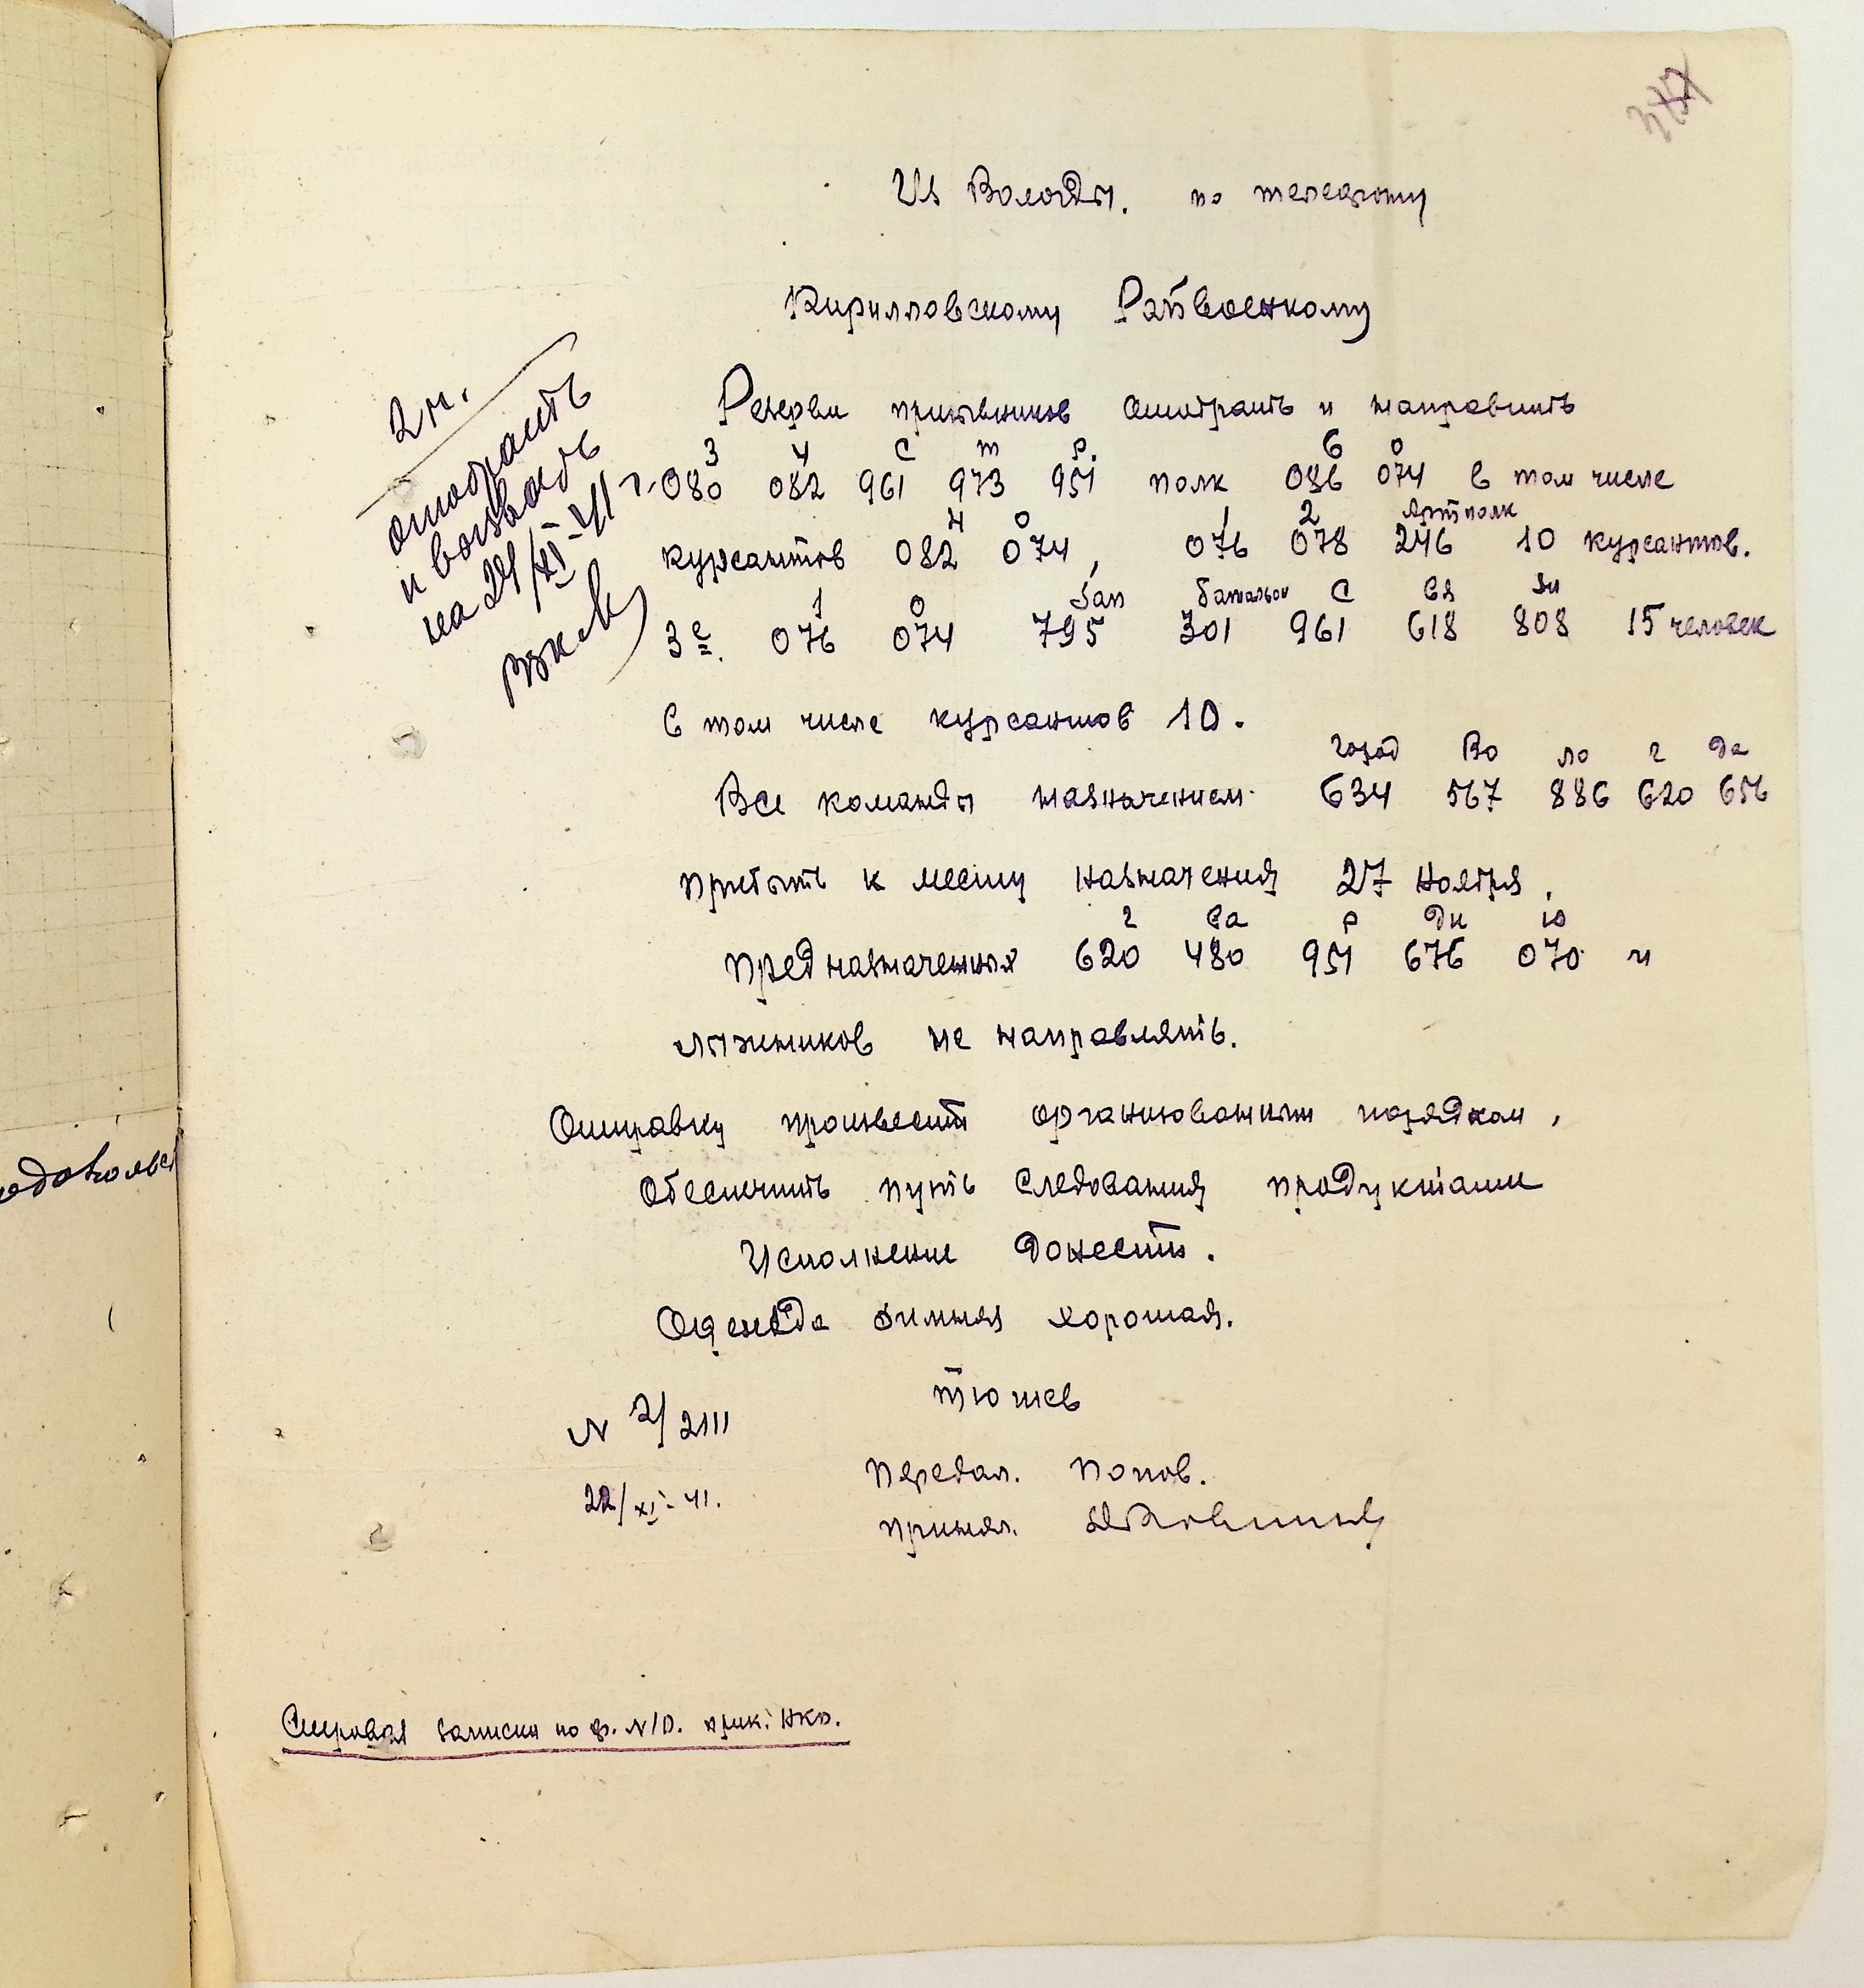 Из Вологды. по телефону
Кирилловскому Райвоенкому
2ч.
отобрать
и вызвать
на 24/XI-41 г.
Резервы призывников отобрать и направить
3 4 С т р. 6 0
080 082 961 973 951 полк 086 074 в том числе
4 0 1 2 Артполк
курсантов 082 074, 076 078 246 10 курсантов.
1 0 Зап батальон С вя зи
3е. 076 074 795 301 961 618 808 15 человек
в том числе курсантов 10.
город Во ло г да
Все команды назначением 634 567 886 620 656
прибыть к месту назначения 27 ноября.
г ва р ди ю
Предназначенных 620 480 951 676 070 и
лыжников не направлять.
Отправку произвести организованным порядком,
Обеспечить путь следования продуктами
Исполнение донести.
Одежда зимняя хорошая.
Тюшев
N 2/2111
Передал. Попов.
22/XI-41.
принял.
Смировая записки по ф. N10. прик. НКО.